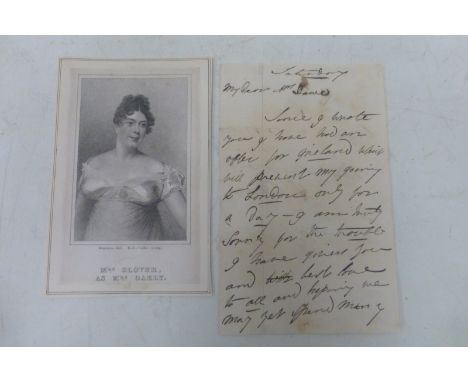 Mrs GLOVER,
AS Mrs OAKLY.
Saturday
My dear Mrs
Since I wrote
you I have had an
offer for Ireland which
will prevent my going
to London only for
a Day – I am truly
Sorry for the trouble
I have given you
and best love
to all and hoping we
may yet spend many